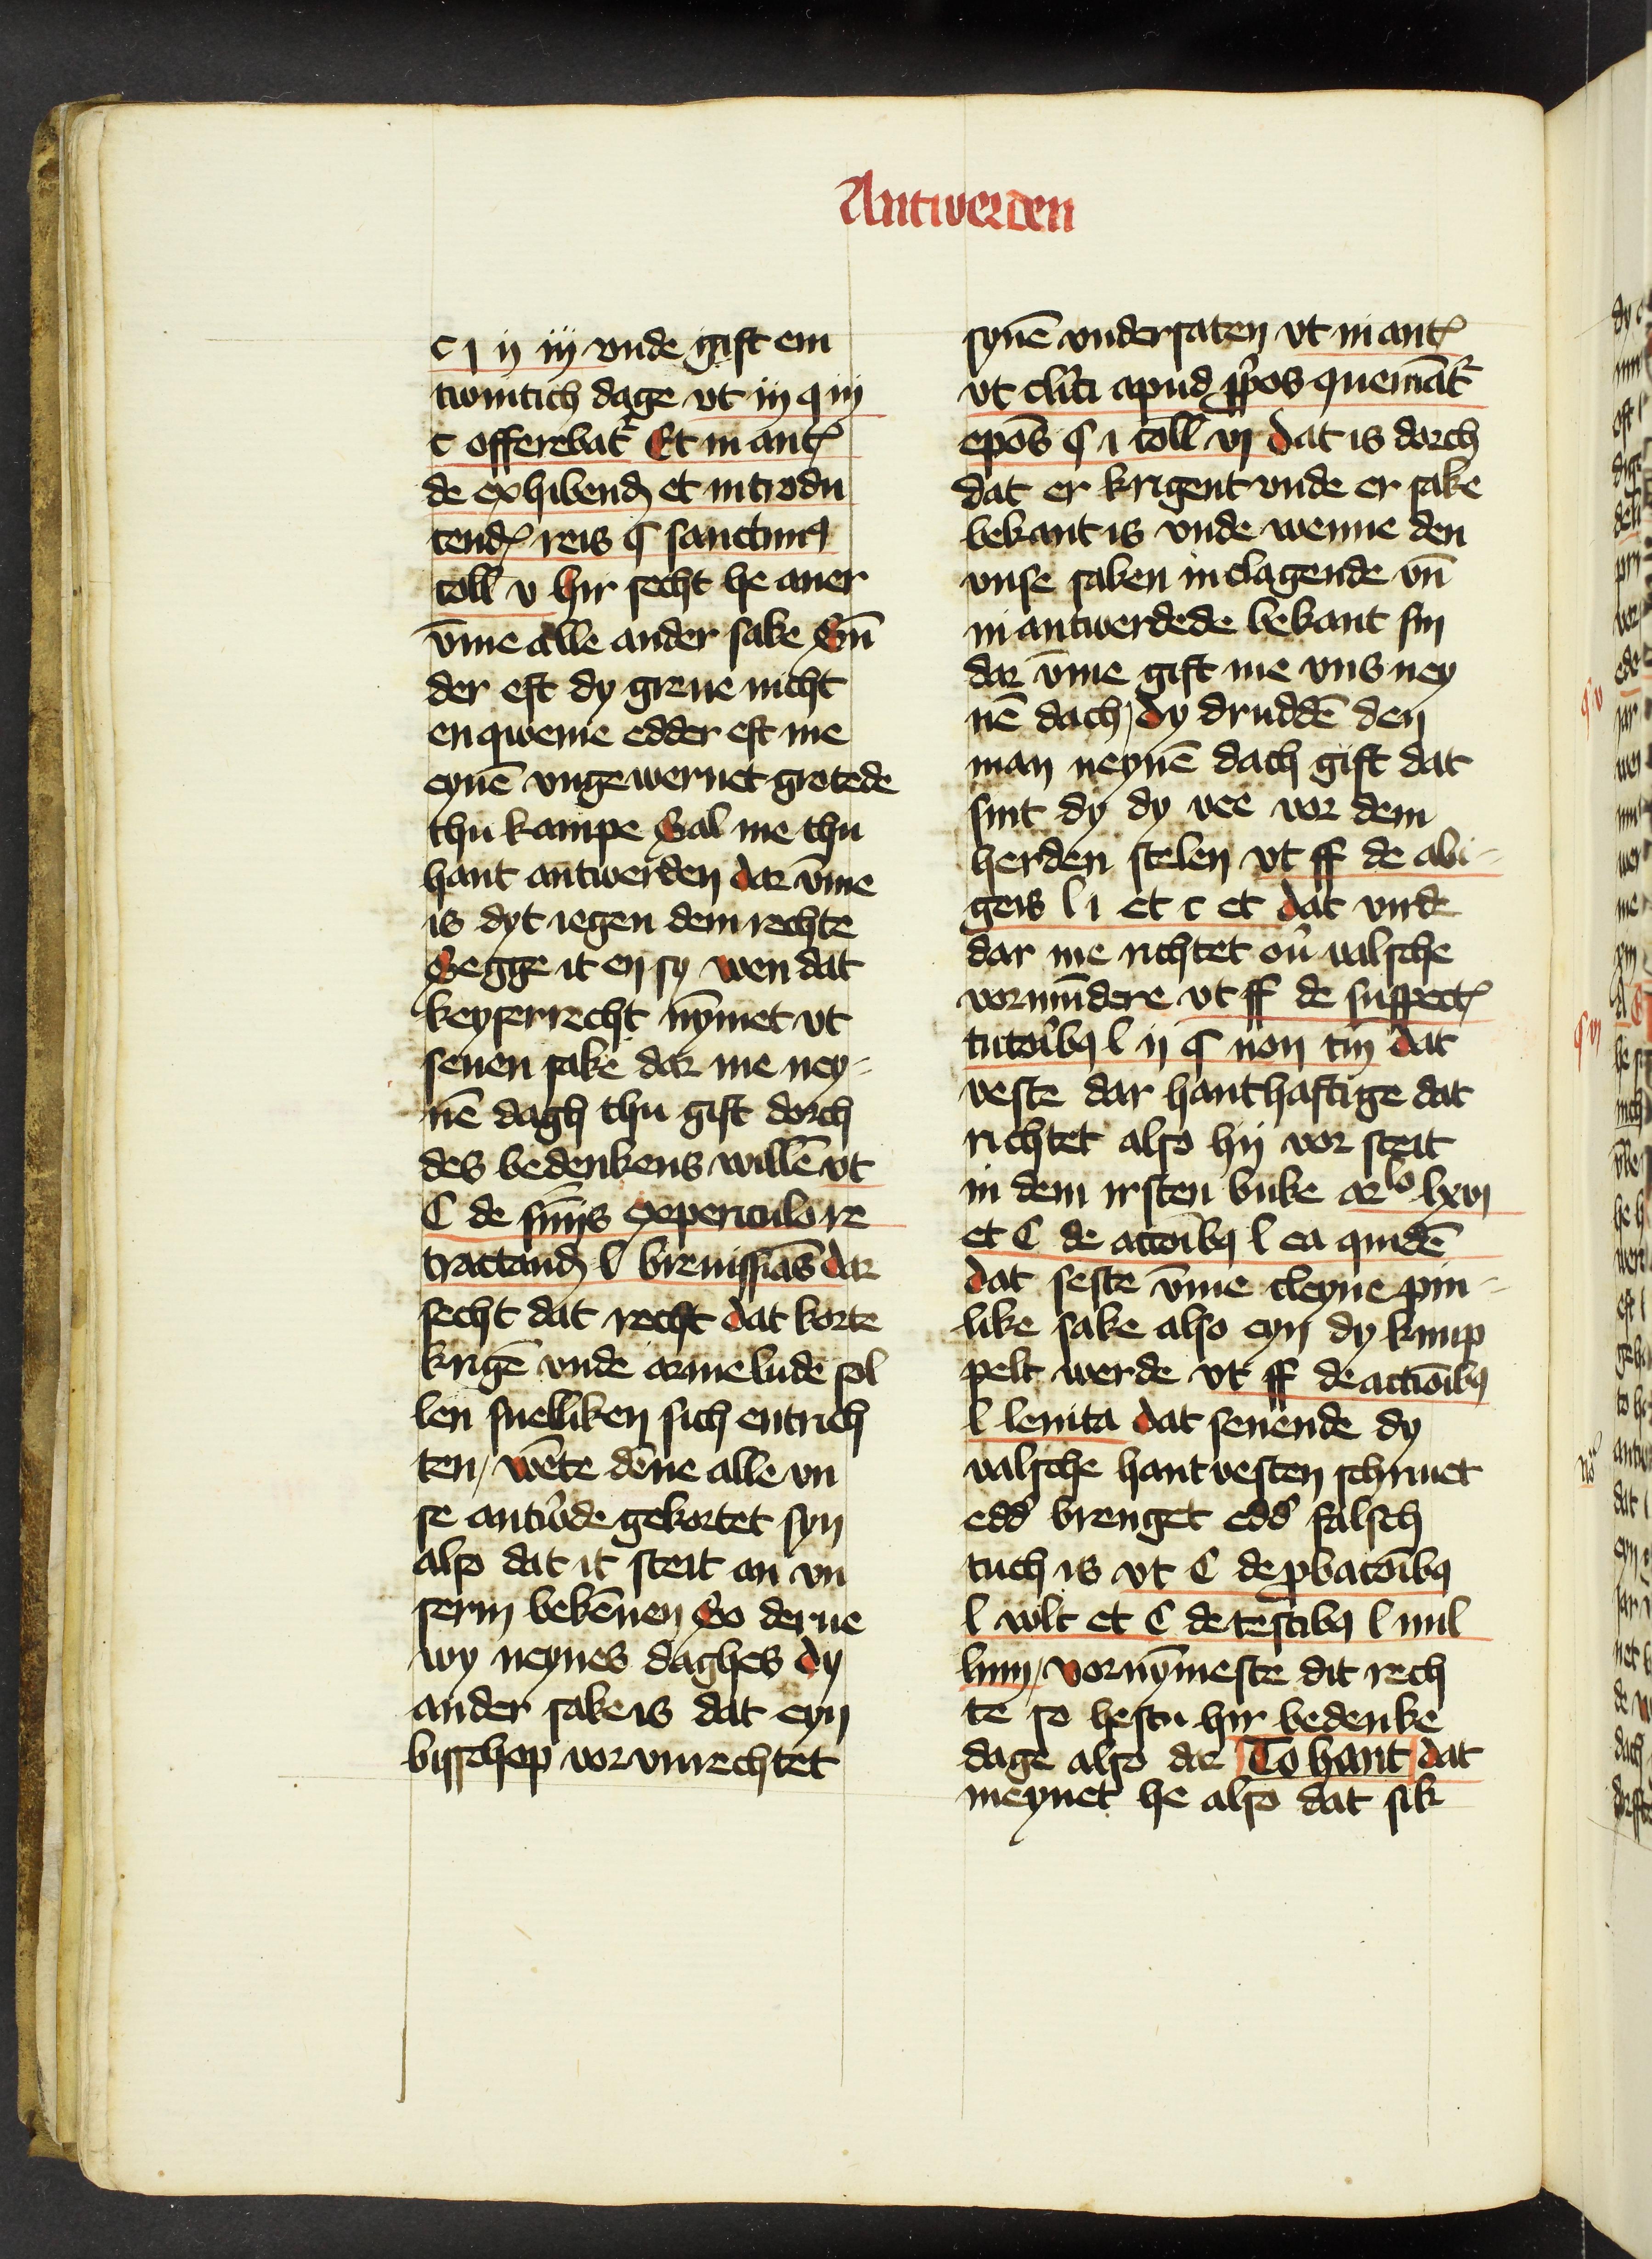 Antwerden
c j ij iij vnde gift em
twintich dage vt iij q iij
c offerebat᷑ Et in antꝭ
de exhibendꝭ et introdu
cendꝭ reis § sanctimꝰ
coll v hir secht he auer
v̄me alle ander sake Sūn
der eft dy greue nicht
en queme edder eft me
eynē vngewernet grotede
thu kampe Sal me thu
hant antwerden dar v̄me
is dyt iegen dem rechte
Segge it en sy wen dat
keyserrecht nȳmet vt
seuen sake dar me ney-
nē dagh thu gift dorch
des bedenkens willē vt
C de sn̄iis ex periculo re
tractandꝭ l breuissīas dar
secht dat recht dat korte
krigē vnde arme lude sol
len snelliken sich entrich
ten / wēte dēne alle vn
se antw̉de gekortet syn
also dat it steit an vn
serm bekēnen So derue
wy neynes daghes dy
ander sake is dat eyn
bisschop vor vnrechtet
synē vndersaten vt in antꝭ
vt cl̉ici apud ꝓp̉os quemāt᷑
ep̄os § i coll vj dat is dorch
dat er krigent vnde er sake
bekant is vnde wenne den
vnse saken in clagende vn̄
in antwerdede bekant sin
dar v̄me gift me vns ney
nē dach / dy druddē den
man neynē dach gift dat
sint dy dy vee vor dem
herden stelen vt ff de abi-
geis l i et c et dat virde
dar me richtet ou̓ valsche
vormūdere vt ff de suspectꝭ
tutor̉ibꝫ l ij § non tm̄ dat
veste dar hanthaftige dat
richtet also hij vor steit
in dem irsten buke ar^lo lxvj
et C de acc̄oibꝫ l ea quidē
dat seste v̄me cleyne pin-
like sake also eyn dy knup
pelt werde vt ff de acc̄oibꝫ
l leuita dat seuende dy
valsche hantvesten schriuet
edd̉ brenget edd̉ falsch
tuch is vt C de ꝓbac̄oibꝫ
l vlt et C de testibꝫ l nul
lum / vornȳmeste dit rech
te so hestu hir bedenke
dage also dar To hant dat
meynet he also dat sik